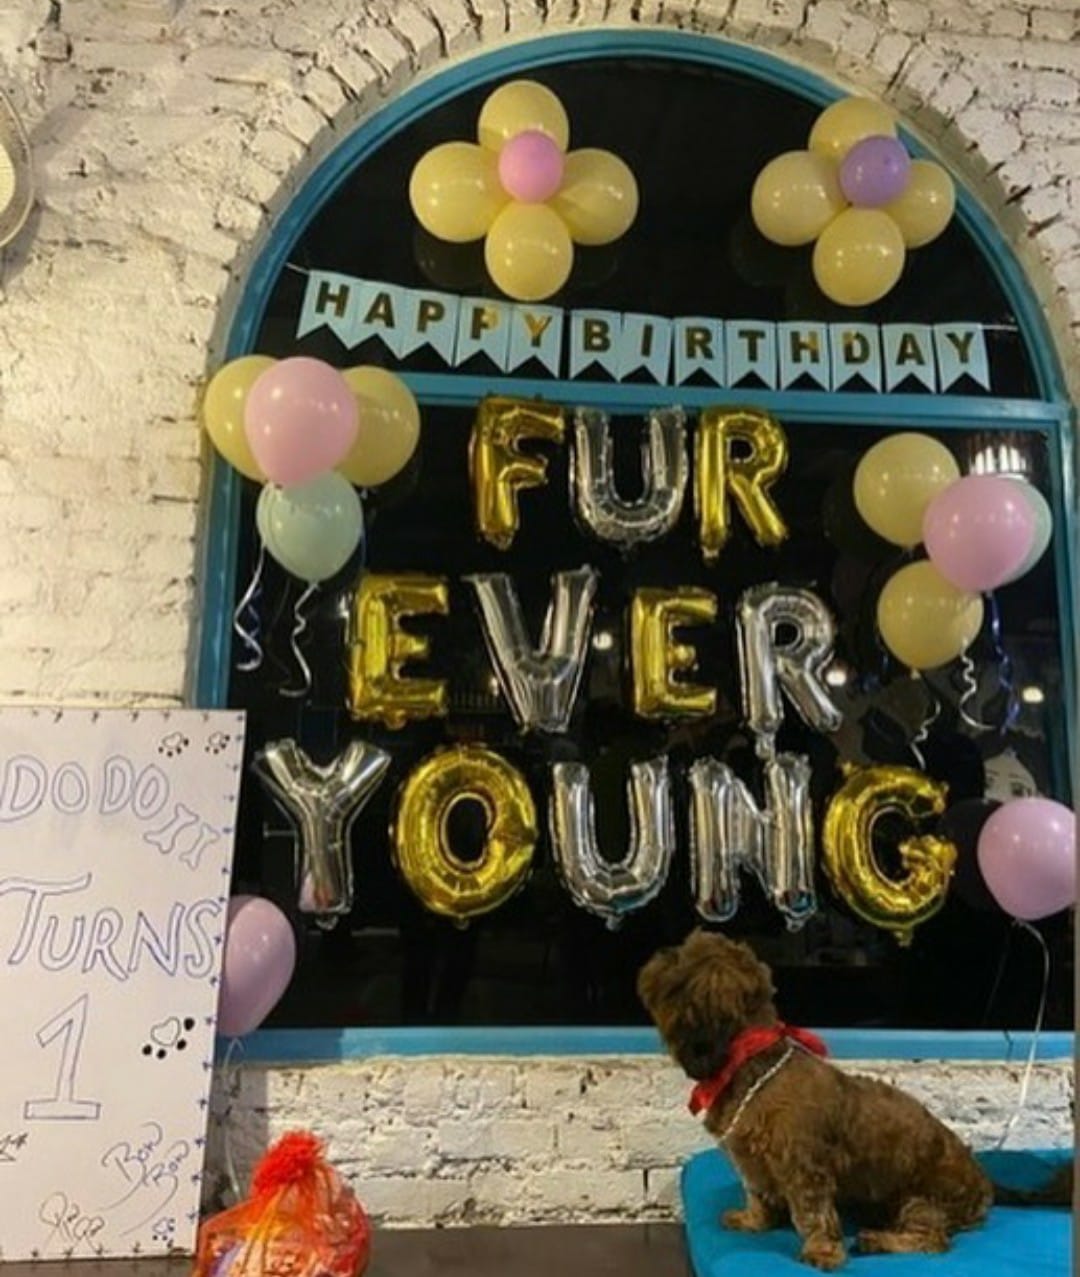 HAPPY BIRTHDAY
FUR
EVER
YOUNG
DODOII
TURNS
1
BOW
BOW